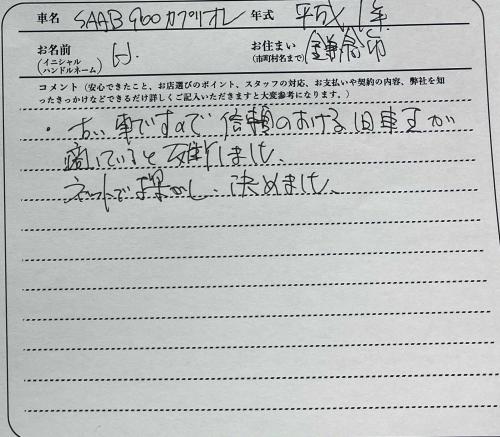 車名 SAAB 900 カブリオレ 年式 平成 1年
お名前 (イニシャル ハンドルネーム) H. お住まい (市町村名まで) 鎌倉市
コメント(安心できたこと、お店選びのポイント、スタッフの対応、お支払いや契約の内容、弊社を知
ったきっかけなどできるだけ詳しくご記入いただきますと大変参考になります。)
・古い車ですので信頼のおける旧車ですが
していると判断しました。
ネットで探がし、決めました。